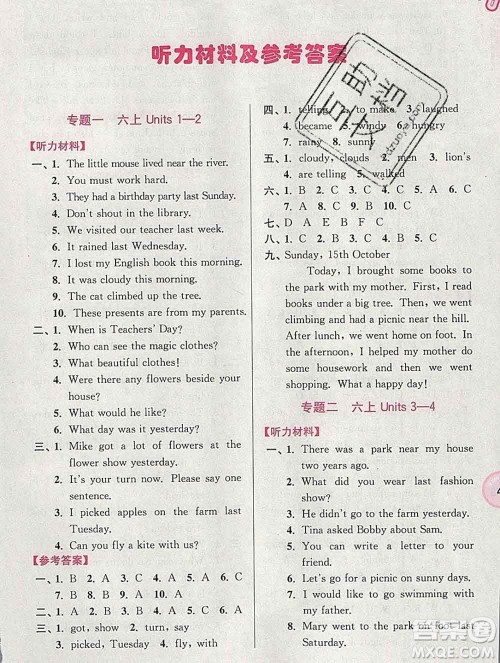 听力材料及参考答案
专题一 六上 Units 1—2
【听力材料】
一、1. The little mouse lived near the river.
2. You must work hard.
3. They had a birthday party last Sunday.
4. Don't shout in the library.
5. We visited our teacher last week.
6. It rained last Wednesday.
7. I lost my English book this morning.
8. It was cloudy this morning.
9. The cat climbed up the tree.
10. These presents are from my parents.
二、1. When is Teachers' Day?
2. Who can see the magic clothes?
3. What beautiful clothes!
4. Were there any flowers beside your
house?
5. What would he like?
6. What day was it yesterday?
三、1. Mike got a lot of flowers at the
flower show yesterday.
2. This is an interesting story. Please say one
sentence.
3. I picked apples on the farm last
Tuesday.
4. Can you fly a kite with us?
【参考答案】
一、1. B 2. A 3. A 4. A 5. A 6. C
7. B 8. B 9. A 10. A
二、1. B 2. C 3. A 4. C 5. B 6. C
三、1. got, show 2. turn, say
3. picked, Tuesday 4. fly, with
四、1. telling 2. to make 3. laughed
4. became 5. wings 6. hungry
7. rainy 8. sunny
五、1. cloudy, clouds 2. men 3. lion's
4. are telling 5. walked
六、1. B 2. C 3. C 4. C 5. A 6. C
七、D A E F C
八、1. C 2. A 3. B 4. A 5. C
九、Sunday, 15th October
Today, I brought some books to
the park with my mother. First, I read
books under a big tree. Then, we went
climbing and had a picnic near the hill.
After lunch, we went home on foot.
In the afternoon, I helped my mother do
some housework. Then we went
shopping. What a happy day!
专题二 六上 Units 3—4
【听力材料】
一、1. There was a park near my house
two years ago.
2. What did you wear last fashion
show?
3. He didn't go to the farm yesterday.
4. Tina asked Bobby about Sam.
5. You can write a letter to your
friend.
6. Let's go for a picnic on sunny days.
7. I'm going to go swimming with
my father.
8. Mary went to the park on foot last
Saturday.
答案圈
MXQE.COM